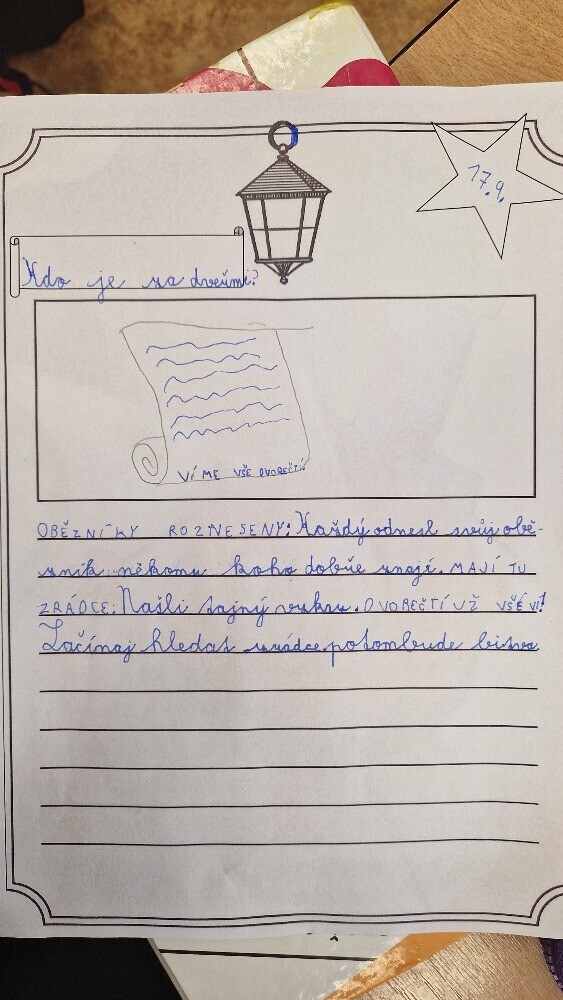 17.9.
Kdo je za dveřmi?
VÍME VŠE DVOREČTÍ!
OBĚZNÍKY ROZNESENY: Každý odnesl svůj obě-
zník někomu koho dobře znají. MAJÍ TU
ZRÁDCE: Našli tajný vzkaz. DVOREČTÍ UŽ VŠE VÍ!
Začínaj hledat zrádce, potom bude bitva